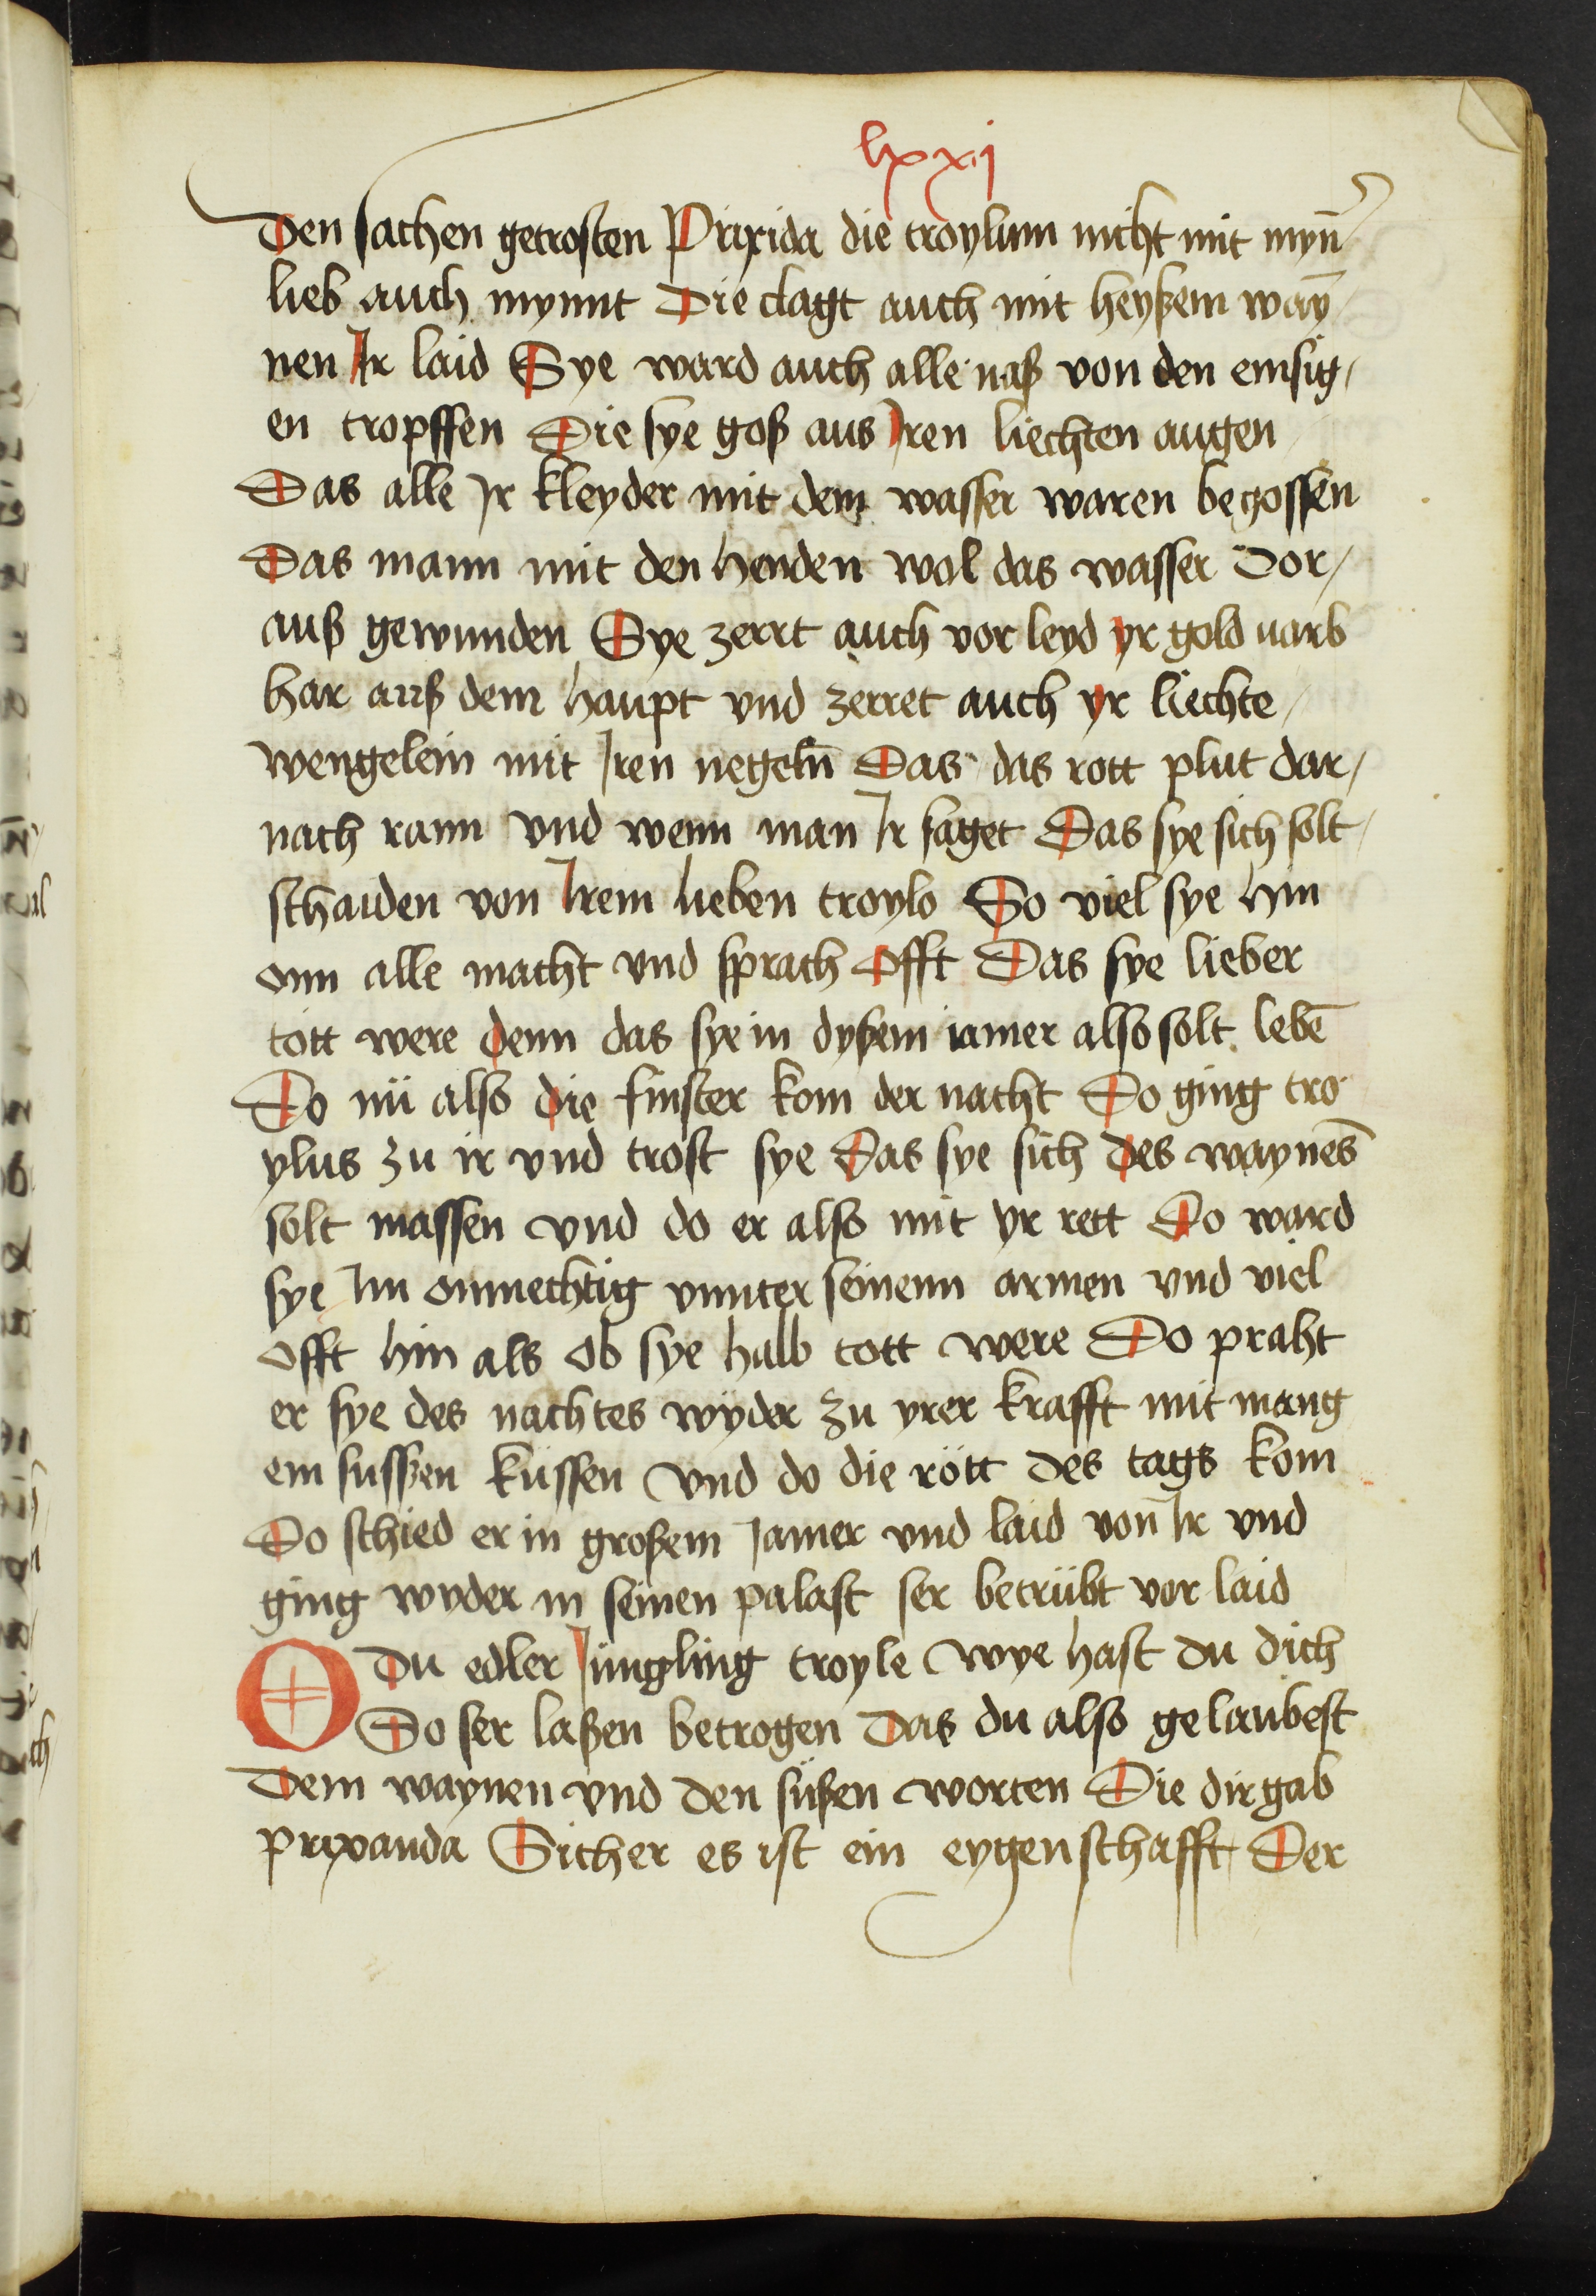 lxxij
Den sachen getrosten Prixida die troylum nicht mit myn̄
lieb auch mynnt Die clagt auch mit heyßem waȳ
nen Ir laid Sye ward auch alle naß von den emsig/
en tropffen Die sye goß aus Iren liechten augen
Das alle Ir kleyder mit dem wasser waren begossen
Das mann mit den henden wol das wasser dor/
auß gewunden Sye zerrt auch vor leyd yr gold uarb
har auß dem haupt vnd zerret auch yr liechte/
wengelein mit Iren negeln̄ Das das rott plut dar/
nach rann vnd wenn man Ir saget Das sye sich solt/
schaiden von Irem lieben troylo So viel sye hin
onn alle macht vnd sprach offt Das sye lieber
tott were denn das sye in dyßem iamer also solt lebē
Do nü also die finster kom der nacht Do ging tro
ylus zu ir vnd trost sye Das sye sich des waynēs
solt massen vnd do er also mit yr rett Do ward
sye Im onmechtig vnnter seinenn armen vnd viel
offt hin als ob sye halb tott were Do praht
er sye des nachtes wyder zu yrer krafft mit mang
em sussen küssen vnd do die rött des tags kom
Do schied er in großem Iamer vnd laid von̄ Ir vnd
ging wyder in seinen palast ser betrübt vor laid
O Du edler Jüngling troyle wye hast du dich
So ser laßen betrogen Das du also gelaubest
Dem waynen vnd den süßen worten Die dir gab
prixanda Sicher es ist ein eygenschafft Der